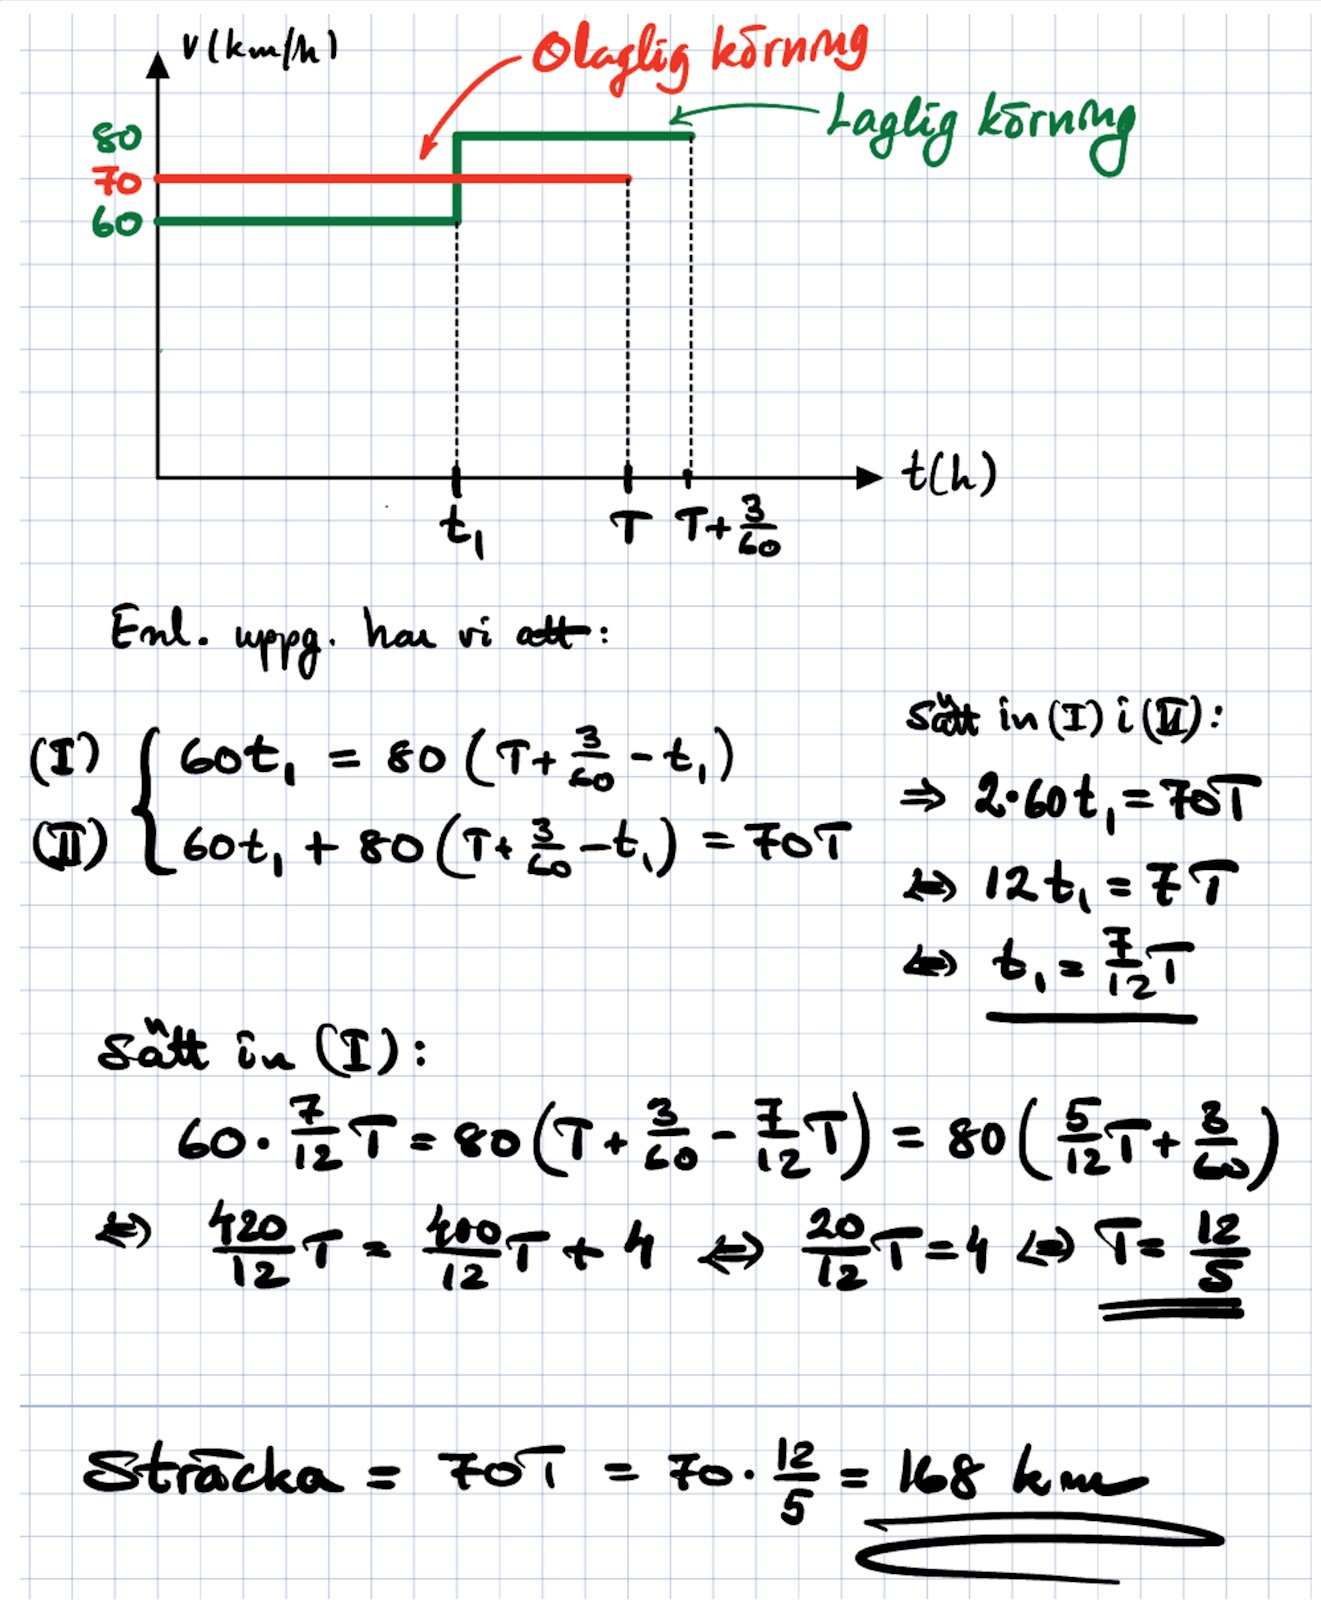 v(km/h)
Olaglig körning
Laglig körning
80
70
60
t(h)
t₁ T T+3/60
Enl. uppg. har vi att:
(I) 60t₁ = 80(T+3/60-t₁)
(II) 60t₁ + 80(T+3/60-t₁) = 70T
Sätt in (I) i (II):
⇒ 2·60t₁ = 70T
⇔ 12t₁ = 7T
⇔ t₁ = 7/12T
Sätt in (I):
60·7/12T = 80(T+3/60-7/12T) = 80(5/12T+3/60)
⇔ 420/12T = 400/12T + 4 ⇔ 20/12T = 4 ⇔ T = 12/5
Sträcka = 70T = 70·12/5 = 168 km